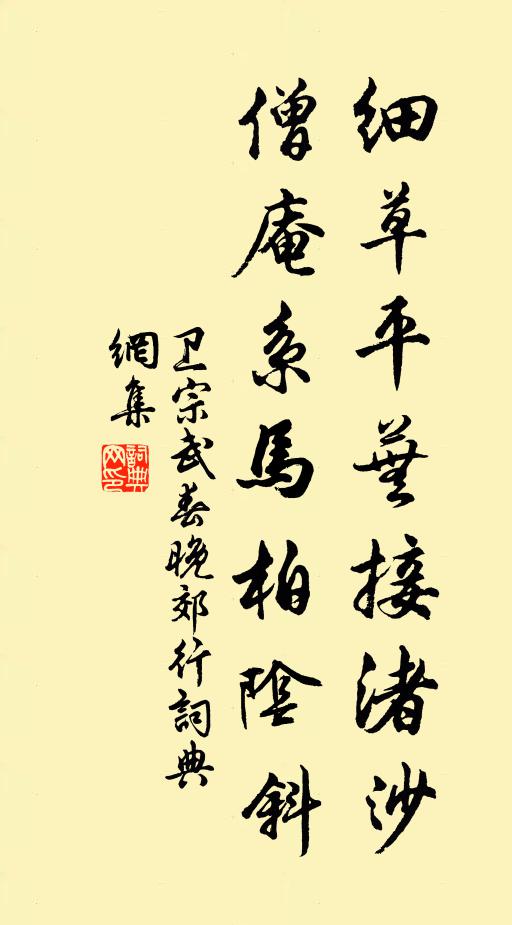 细草平蕪接渚沙
僧庵系馬柏陰斜
卫宗武春晚郊行詞典
網集
詞典
网印